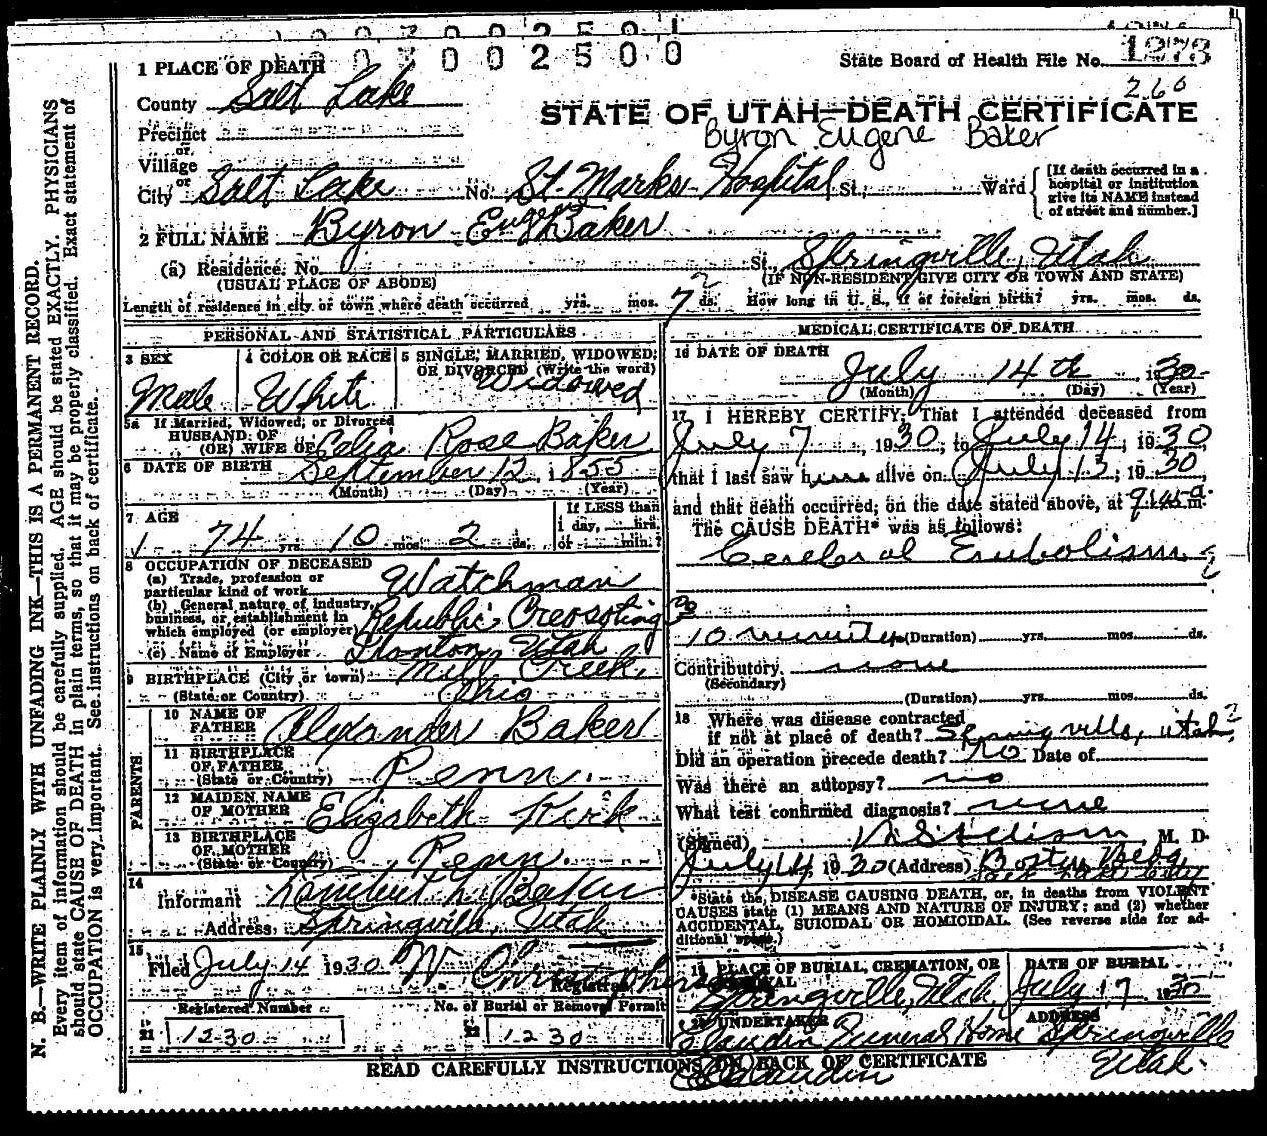 1 PLACE OF DEATH
State Board of Health File No. 1273
260
County Salt Lake
STATE OF UTAH—DEATH CERTIFICATE
Byron Eugene Baker
Precinct
or
Village
or
City Salt Lake No. St. Marks Hospital St., Ward
[If death occurred in a hospital or institution give its NAME instead of street and number.]
2 FULL NAME Byron Eugene Baker
(a) Residence. No. St., Springville, Utah
(USUAL PLACE OF ABODE) (IF NON-RESIDENT GIVE CITY OR TOWN AND STATE)
Length of residence in city or town where death occurred yrs. mos. 7 ds. How long in U. S., if of foreign birth? yrs. mos. ds.
PERSONAL AND STATISTICAL PARTICULARS
3 SEX
Male
4 COLOR OR RACE
White
5 SINGLE, MARRIED, WIDOWED, OR DIVORCED (Write the word)
Widowed
5a If Married, Widowed, or Divorced
HUSBAND OF
(OR) WIFE OF Celia Rose Baker
6 DATE OF BIRTH September 12, 1855
(Month) (Day) (Year)
7 AGE
74 yrs. 10 mos. 2 ds.
If LESS than
1 day, hrs.
or min.?
8 OCCUPATION OF DECEASED
(a) Trade, profession or
particular kind of work Watchman
(b) General nature of industry,
business, or establishment in
which employed (or employer) Republic Creosoting Co
(c) Name of Employer Utah
9 BIRTHPLACE (City or town) Mill Creek,
(State or Country) Ohio
PARENTS
10 NAME OF
FATHER Alexander Baker
11 BIRTHPLACE
OF FATHER
(State or Country) Penn.
12 MAIDEN NAME
OF MOTHER Elizabeth Kirk
13 BIRTHPLACE
OF MOTHER
(State or Country) Penn.
14
Informant Baker
Address, Springville, Utah
15
Filed July 14 1930 W. Christopherson
Registrar
Registered Number No. of Burial or Removal Permit
21 1230 22 1230
MEDICAL CERTIFICATE OF DEATH
16 DATE OF DEATH
July 14th, 1930
(Month) (Day) (Year)
17 I HEREBY CERTIFY, That I attended deceased from
July 7, 1930, to July 14, 1930,
that I last saw him alive on July 13, 1930,
and that death occurred, on the date stated above, at 9:45 a. m.
The CAUSE DEATH* was as follows:
Cerebral Embolism
10 minutes (Duration) yrs. mos. ds.
Contributory none
(Secondary)
(Duration) yrs. mos. ds.
18 Where was disease contracted
if not at place of death? Springville, Utah?
Did an operation precede death? No Date of
Was there an autopsy? no
What test confirmed diagnosis? none
(Signed) M. D.
July 14, 1930 (Address) Boston Bldg,
Salt Lake City
*State the DISEASE CAUSING DEATH, or, in deaths from VIOLENT
CAUSES state (1) MEANS AND NATURE OF INJURY; and (2) whether
ACCIDENTAL, SUICIDAL OR HOMICIDAL. (See reverse side for ad-
ditional space.)
19 PLACE OF BURIAL, CREMATION, OR REMOVAL
Springville, Utah,
DATE OF BURIAL
July 17 1930
20 UNDERTAKER
Claudin Funeral Home
ADDRESS
Springville
Utah.
READ CAREFULLY INSTRUCTIONS ON BACK OF CERTIFICATE
Claudin
N. B.—WRITE PLAINLY WITH UNFADING INK—THIS IS A PERMANENT RECORD.
Every item of information should be carefully supplied. AGE should be stated EXACTLY. PHYSICIANS
should state CAUSE OF DEATH in plain terms, so that it may be properly classified. Exact statement of
OCCUPATION is very important. See instructions on back of certificate.